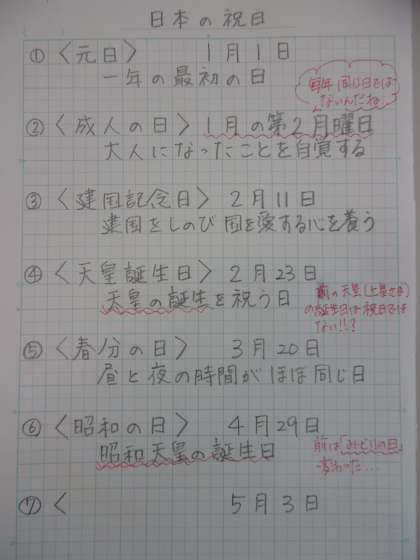 日本の祝日
① 〈元日〉 1月1日
一年の最初の日
毎年同じ日では
ないんだね
② 〈成人の日〉 1月の第2月曜日
大人になったことを自覚する
③ 〈建国記念日〉 2月11日
建国をしのび 国を愛する心を養う
④ 〈天皇誕生日〉 2月23日
天皇の誕生を祝う日
前の天皇(上皇さま)
の誕生日は祝日では
ない!!?
⑤ 〈春分の日〉 3月20日
昼と夜の時間がほぼ同じ日
⑥ 〈昭和の日〉 4月29日
昭和天皇の誕生日
前は「みどりの日」
変わった…
⑦ 〈 5月3日